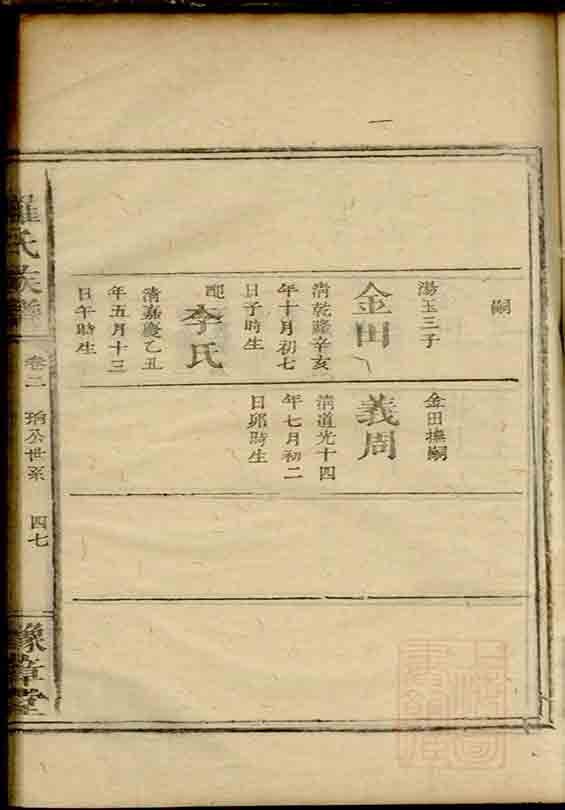 嗣
湯玉三子
金田
清乾隆辛亥
年十月初七
日子時生
配
李氏
清嘉慶乙丑
年五月十三
日午時生
金田撫嗣
義周
清道光十四
年七月初二
日卯時生
羅氏族譜
卷二
珦公世系
四七
豫章堂